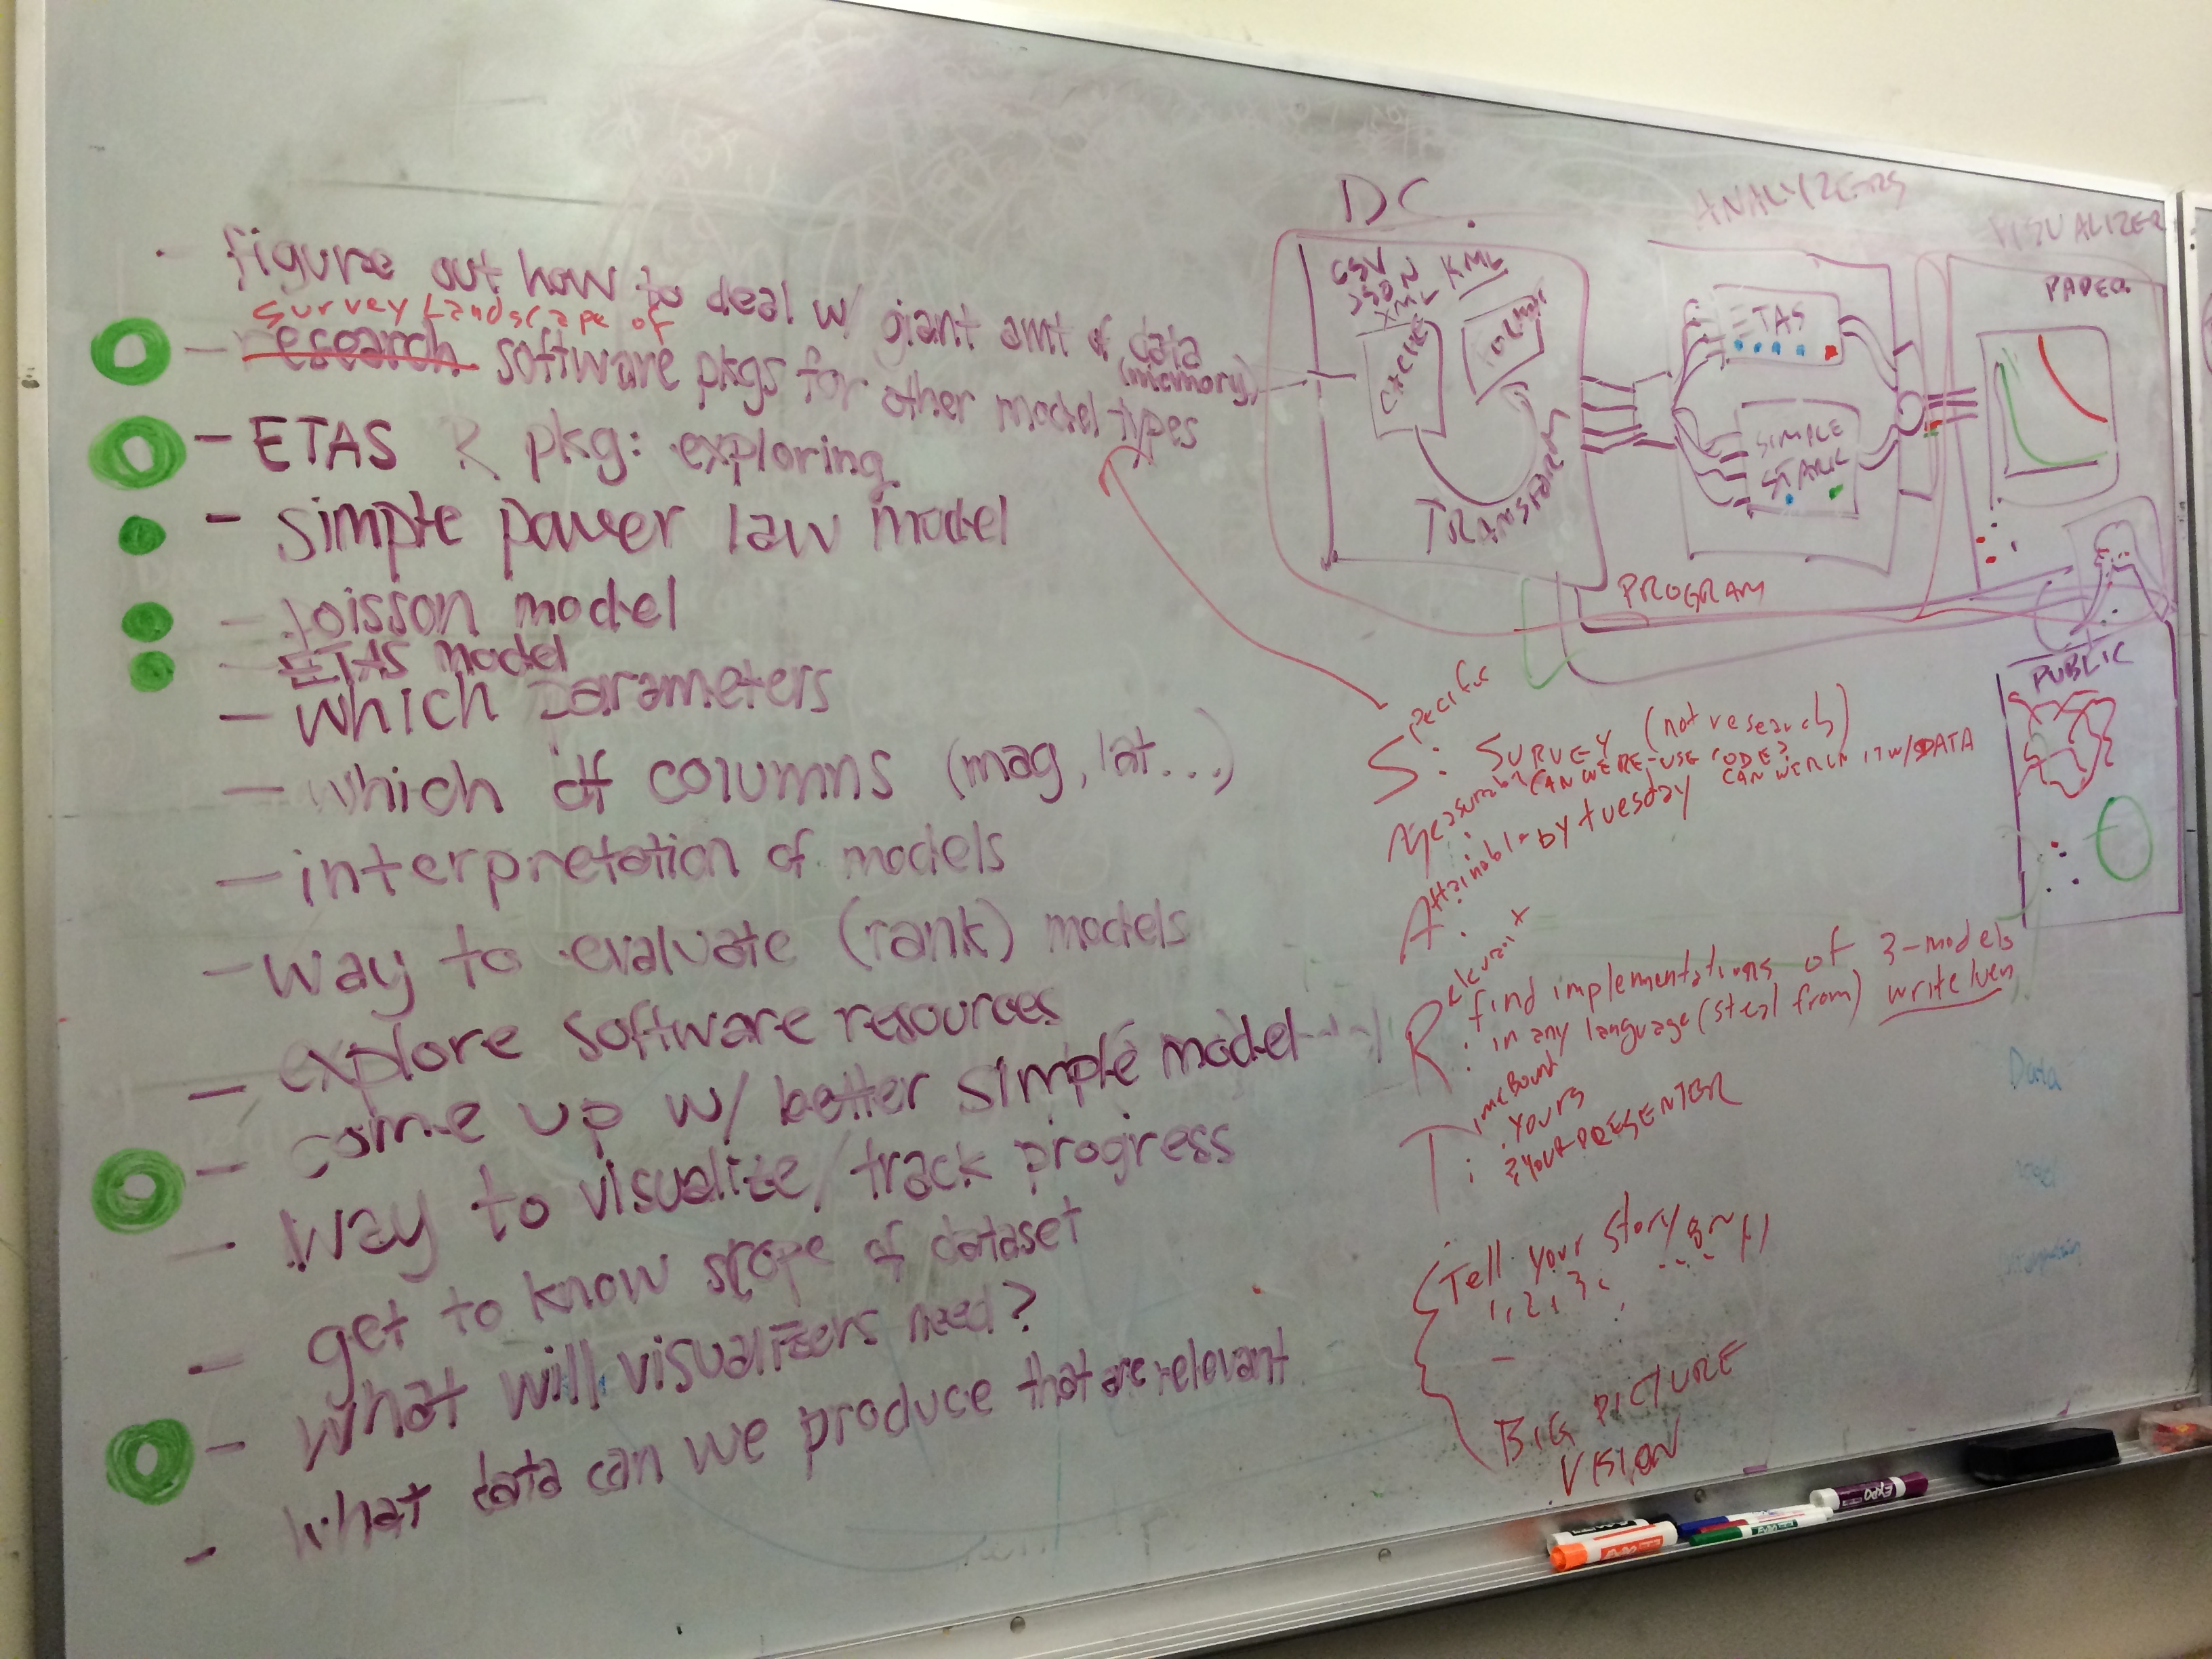 - figure out how to deal w/ giant amt of data
(memory)
survey Landscape of
- research software pkgs for other model types
- ETAS R pkg: exploring
- simple power law model
- poisson model
- ETAS model
- which parameters
- which df columns (mag, lat...)
- interpretation of models
- way to evaluate (rank) models
- explore software resources
- come up w/ better simple model
- way to visualize/track progress
- get to know scope of dataset
- what will visualizers need?
- what data can we produce that are relevant
DC
CSV
JSON
XML
KML
TRANSFORM
PROGRAM
ANALYZERS
ETAS
SIMPLE
STARK
VISUALIZER
PAPER
PUBLIC
Specific: SURVEY (not research)
Measurable: CAN WE RE-USE CODE?
CAN WE RUN IT W/ DATA
Attainable - by tuesday
Relevant: find implementations of 3-models
in any language (steal from)
Time Bound: YOURS
& YOUR PRESENTER
Tell your story
1, 2, 3,
BIG PICTURE
VISION
Data
EXPO